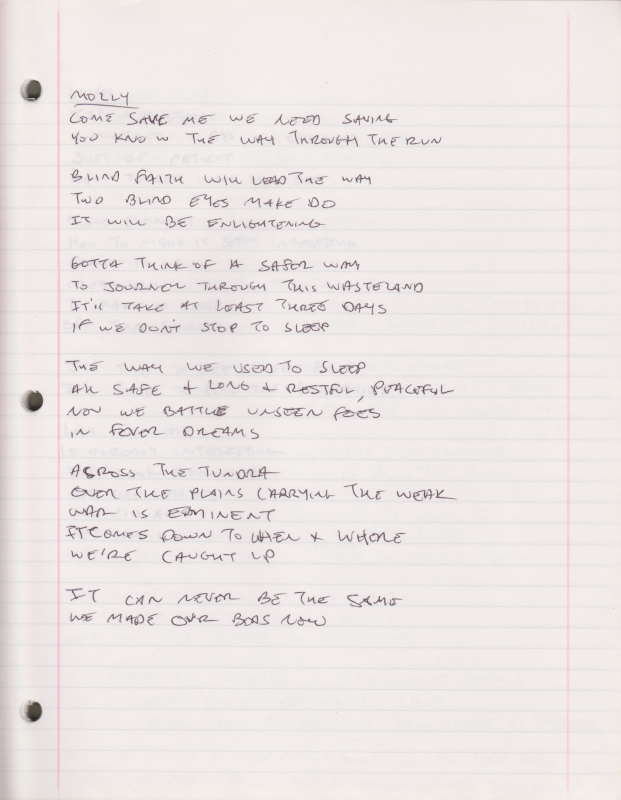 MOLLY
COME SAVE ME WE NEED SAVING
YOU KNOW THE WAY THROUGH THE RUN
BLIND FAITH WILL LEAD THE WAY
TWO BLIND EYES MAKE DO
IT WILL BE ENLIGHTENING
GOTTA THINK OF A SAFER WAY
TO JOURNEY THROUGH THIS WASTELAND
IT'LL TAKE AT LEAST THREE DAYS
IF WE DON'T STOP TO SLEEP
THE WAY WE USED TO SLEEP
ALL SAFE + LONG + RESTFUL, PEACEFUL
NOW WE BATTLE UNSEEN FOES
IN FEVER DREAMS
ACROSS THE TUNDRA
OVER THE PLAINS CARRYING THE WEAK
WAR IS EMINENT
IT COMES DOWN TO WHEN + WHERE
WE'RE CAUGHT UP
IT CAN NEVER BE THE SAME
WE MADE OUR BEDS NOW